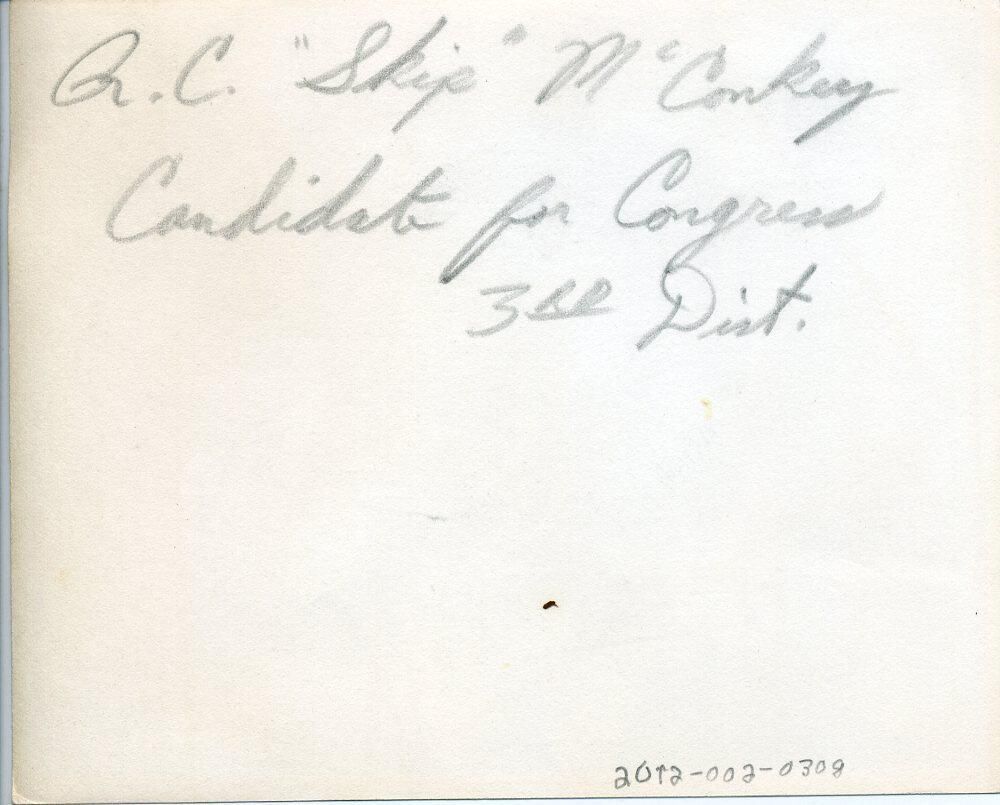 R.C. "Skip" McConkey
Candidate for Congress
3RD Dist.
2012-002-0308